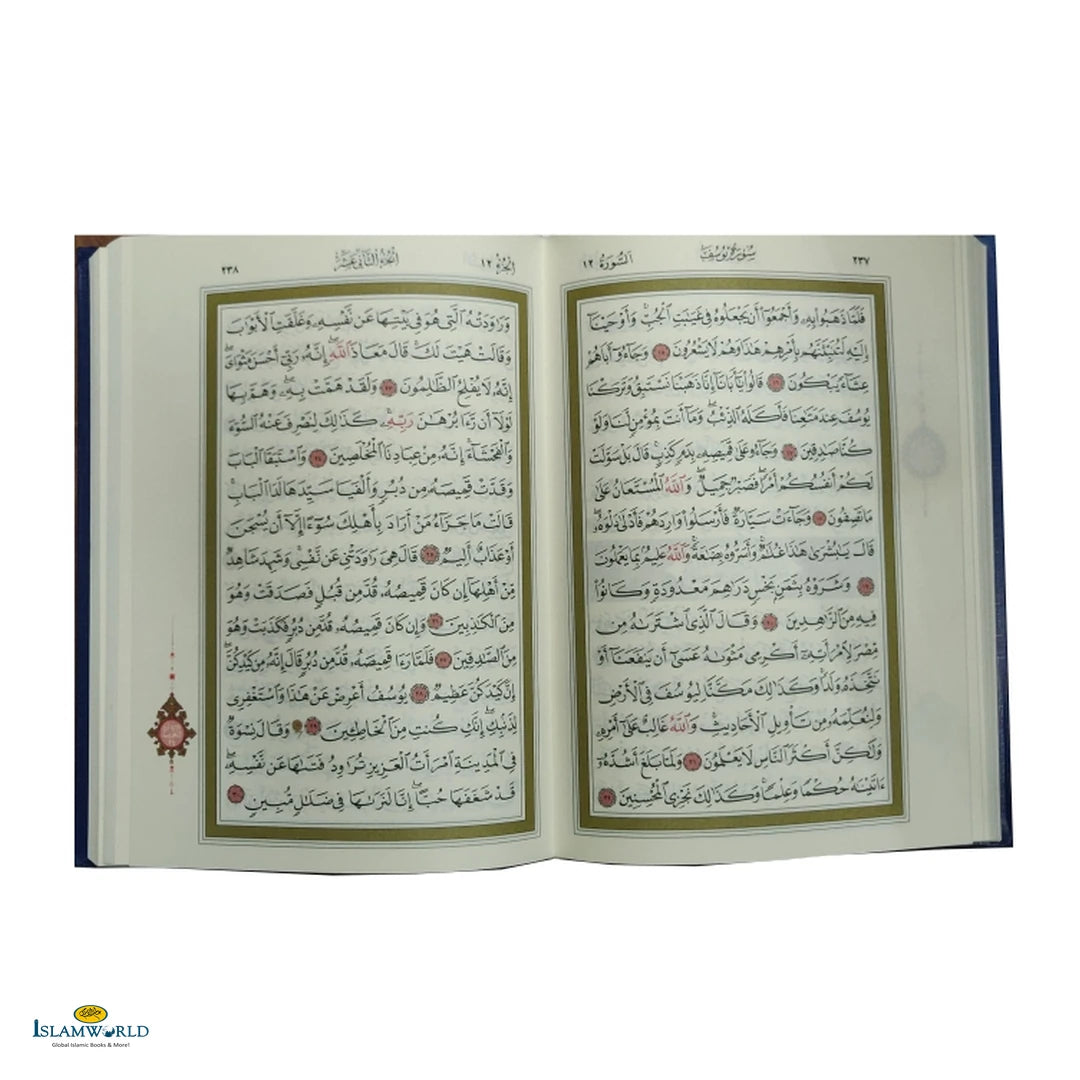 ٢٣٧ سُورَةُ يُوسُفَ السُّورَةُ ١٢
فَلَمَّا ذَهَبُوا۟ بِهِۦ وَأَجْمَعُوٓا۟ أَن يَجْعَلُوهُ فِى غَيَٰبَتِ ٱلْجُبِّ ۚ وَأَوْحَيْنَآ
إِلَيْهِ لَتُنَبِّئَنَّهُم بِأَمْرِهِمْ هَٰذَا وَهُمْ لَا يَشْعُرُونَ ١٥ وَجَآءُوٓ أَبَاهُمْ
عِشَآءً يَبْكُونَ ١٦ قَالُوا۟ يَٰٓأَبَانَآ إِنَّا ذَهَبْنَا نَسْتَبِقُ وَتَرَكْنَا
يُوسُفَ عِندَ مَتَٰعِنَا فَأَكَلَهُ ٱلذِّئْبُ ۖ وَمَآ أَنتَ بِمُؤْمِنٍ لَّنَا وَلَوْ
كُنَّا صَٰدِقِينَ ١٧ وَجَآءُو عَلَىٰ قَمِيصِهِۦ بِدَمٍ كَذِبٍ ۚ قَالَ بَلْ سَوَّلَتْ
لَكُمْ أَنفُسُكُمْ أَمْرًا ۖ فَصَبْرٌ جَمِيلٌ ۖ وَٱللَّهُ ٱلْمُسْتَعَانُ عَلَىٰ
مَا تَصِفُونَ ١٨ وَجَآءَتْ سَيَّارَةٌ فَأَرْسَلُوا۟ وَارِدَهُمْ فَأَدْلَىٰ دَلْوَهُۥ ۖ
قَالَ يَٰبُشْرَىٰ هَٰذَا غُلَٰمٌ ۚ وَأَسَرُّوهُ بِضَٰعَةً ۚ وَٱللَّهُ عَلِيمٌۢ بِمَا يَعْمَلُونَ
١٩ وَشَرَوْهُ بِثَمَنٍۭ بَخْسٍ دَرَٰهِمَ مَعْدُودَةٍ وَكَانُوا۟
فِيهِ مِنَ ٱلزَّٰهِدِينَ ٢٠ وَقَالَ ٱلَّذِى ٱشْتَرَىٰهُ مِن
مِّصْرَ لِٱمْرَأَتِهِۦٓ أَكْرِمِى مَثْوَىٰهُ عَسَىٰٓ أَن يَنفَعَنَآ أَوْ
نَتَّخِذَهُۥ وَلَدًا ۚ وَكَذَٰلِكَ مَكَّنَّا لِيُوسُفَ فِى ٱلْأَرْضِ
وَلِنُعَلِّمَهُۥ مِن تَأْوِيلِ ٱلْأَحَادِيثِ ۚ وَٱللَّهُ غَالِبٌ عَلَىٰٓ أَمْرِهِۦ
وَلَٰكِنَّ أَكْثَرَ ٱلنَّاسِ لَا يَعْلَمُونَ ٢١ وَلَمَّا بَلَغَ أَشُدَّهُۥٓ
ءَاتَيْنَٰهُ حُكْمًا وَعِلْمًا ۚ وَكَذَٰلِكَ نَجْزِى ٱلْمُحْسِنِينَ ٢٢
الجُزْءُ ١٢ الجُزْءُ الثَّانِي عَشَرَ ٢٣٨
وَرَٰوَدَتْهُ ٱلَّتِى هُوَ فِى بَيْتِهَا عَن نَّفْسِهِۦ وَغَلَّقَتِ ٱلْأَبْوَٰبَ
وَقَالَتْ هَيْتَ لَكَ ۚ قَالَ مَعَاذَ ٱللَّهِ ۖ إِنَّهُۥ رَبِّىٓ أَحْسَنَ مَثْوَاىَ ۖ
إِنَّهُۥ لَا يُفْلِحُ ٱلظَّٰلِمُونَ ٢٣ وَلَقَدْ هَمَّتْ بِهِۦ ۖ وَهَمَّ بِهَا
لَوْلَآ أَن رَّءَا بُرْهَٰنَ رَبِّهِۦ ۚ كَذَٰلِكَ لِنَصْرِفَ عَنْهُ ٱلسُّوٓءَ
وَٱلْفَحْشَآءَ ۚ إِنَّهُۥ مِنْ عِبَادِنَا ٱلْمُخْلَصِينَ ٢٤ وَٱسْتَبَقَا ٱلْبَابَ
وَقَدَّتْ قَمِيصَهُۥ مِن دُبُرٍ وَأَلْفَيَا سَيِّدَهَا لَدَا ٱلْبَابِ ۚ
قَالَتْ مَا جَزَآءُ مَنْ أَرَادَ بِأَهْلِكَ سُوٓءًا إِلَّآ أَن يُسْجَنَ
أَوْ عَذَابٌ أَلِيمٌ ٢٥ قَالَ هِىَ رَٰوَدَتْنِى عَن نَّفْسِى ۚ وَشَهِدَ شَاهِدٌ
مِّنْ أَهْلِهَآ إِن كَانَ قَمِيصُهُۥ قُدَّ مِن قُبُلٍ فَصَدَقَتْ وَهُوَ
مِنَ ٱلْكَٰذِبِينَ ٢٦ وَإِن كَانَ قَمِيصُهُۥ قُدَّ مِن دُبُرٍ فَكَذَبَتْ وَهُوَ
مِنَ ٱلصَّٰدِقِينَ ٢٧ فَلَمَّا رَءَا قَمِيصَهُۥ قُدَّ مِن دُبُرٍ قَالَ إِنَّهُۥ مِن كَيْدِكُنَّ ۖ
إِنَّ كَيْدَكُنَّ عَظِيمٌ ٢٨ يُوسُفُ أَعْرِضْ عَنْ هَٰذَا ۚ وَٱسْتَغْفِرِى
لِذَنۢبِكِ ۖ إِنَّكِ كُنتِ مِنَ ٱلْخَاطِـِٔينَ ٢٩ وَقَالَ نِسْوَةٌ
فِى ٱلْمَدِينَةِ ٱمْرَأَتُ ٱلْعَزِيزِ تُرَٰوِدُ فَتَىٰهَا عَن نَّفْسِهِۦ ۖ
قَدْ شَغَفَهَا حُبًّا ۖ إِنَّا لَنَرَىٰهَا فِى ضَلَٰلٍ مُّبِينٍ ٣٠
ISLAMWORLD
Global Islamic Books & More!